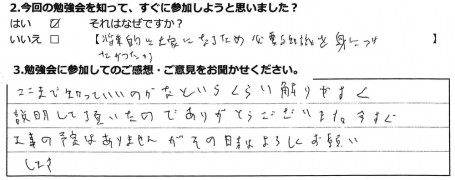 2.今回の勉強会を知って、すぐに参加しようと思いました？
はい ☑ それはなぜですか？
いいえ □ 【将来的に大家になるため必要な知識を身につけ
たかったから 】
3.勉強会に参加してのご感想・ご意見をお聞かせください。
ここまで知っていいのかなというくらい解りやすく
説明して頂いたのでありがとうございました 今すぐ
工事の予定はありませんがその時はよろしくお願い
します